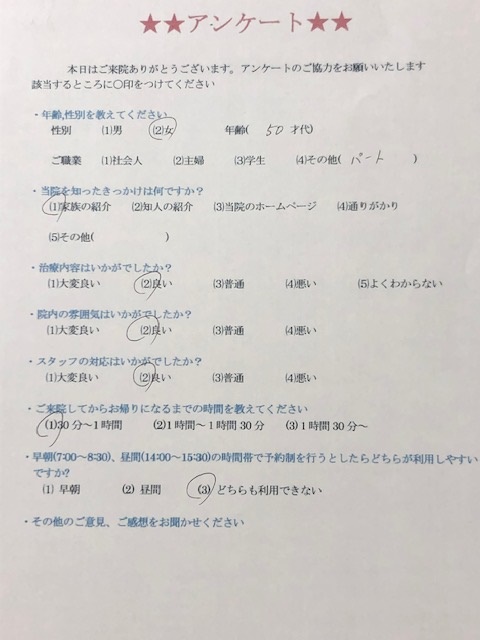 ★★アンケート★★
本日はご来院ありがとうございます。アンケートのご協力をお願いいたします
該当するところに〇印をつけてください
・年齢,性別を教えてください
性別 (1)男 (2)女 年齢( 50 才代)
ご職業 (1)社会人 (2)主婦 (3)学生 (4)その他( パート )
・当院を知ったきっかけは何ですか?
(1)家族の紹介 (2)知人の紹介 (3)当院のホームページ (4)通りがかり
(5)その他( )
・治療内容はいかがでしたか?
(1)大変良い (2)良い (3)普通 (4)悪い (5)よくわからない
・院内の雰囲気はいかがでしたか?
(1)大変良い (2)良い (3)普通 (4)悪い
・スタッフの対応はいかがでしたか?
(1)大変良い (2)良い (3)普通 (4)悪い
・ご来院してからお帰りになるまでの時間を教えてください
(1)30分～1時間 (2)1時間～1時間30分 (3)1時間30分～
・早朝(7:00～8:30)、昼間(14:00～15:30)の時間帯で予約制を行うとしたらどちらが利用しやすい
ですか?
(1) 早朝 (2) 昼間 (3) どちらも利用できない
・その他のご意見、ご感想をお聞かせください